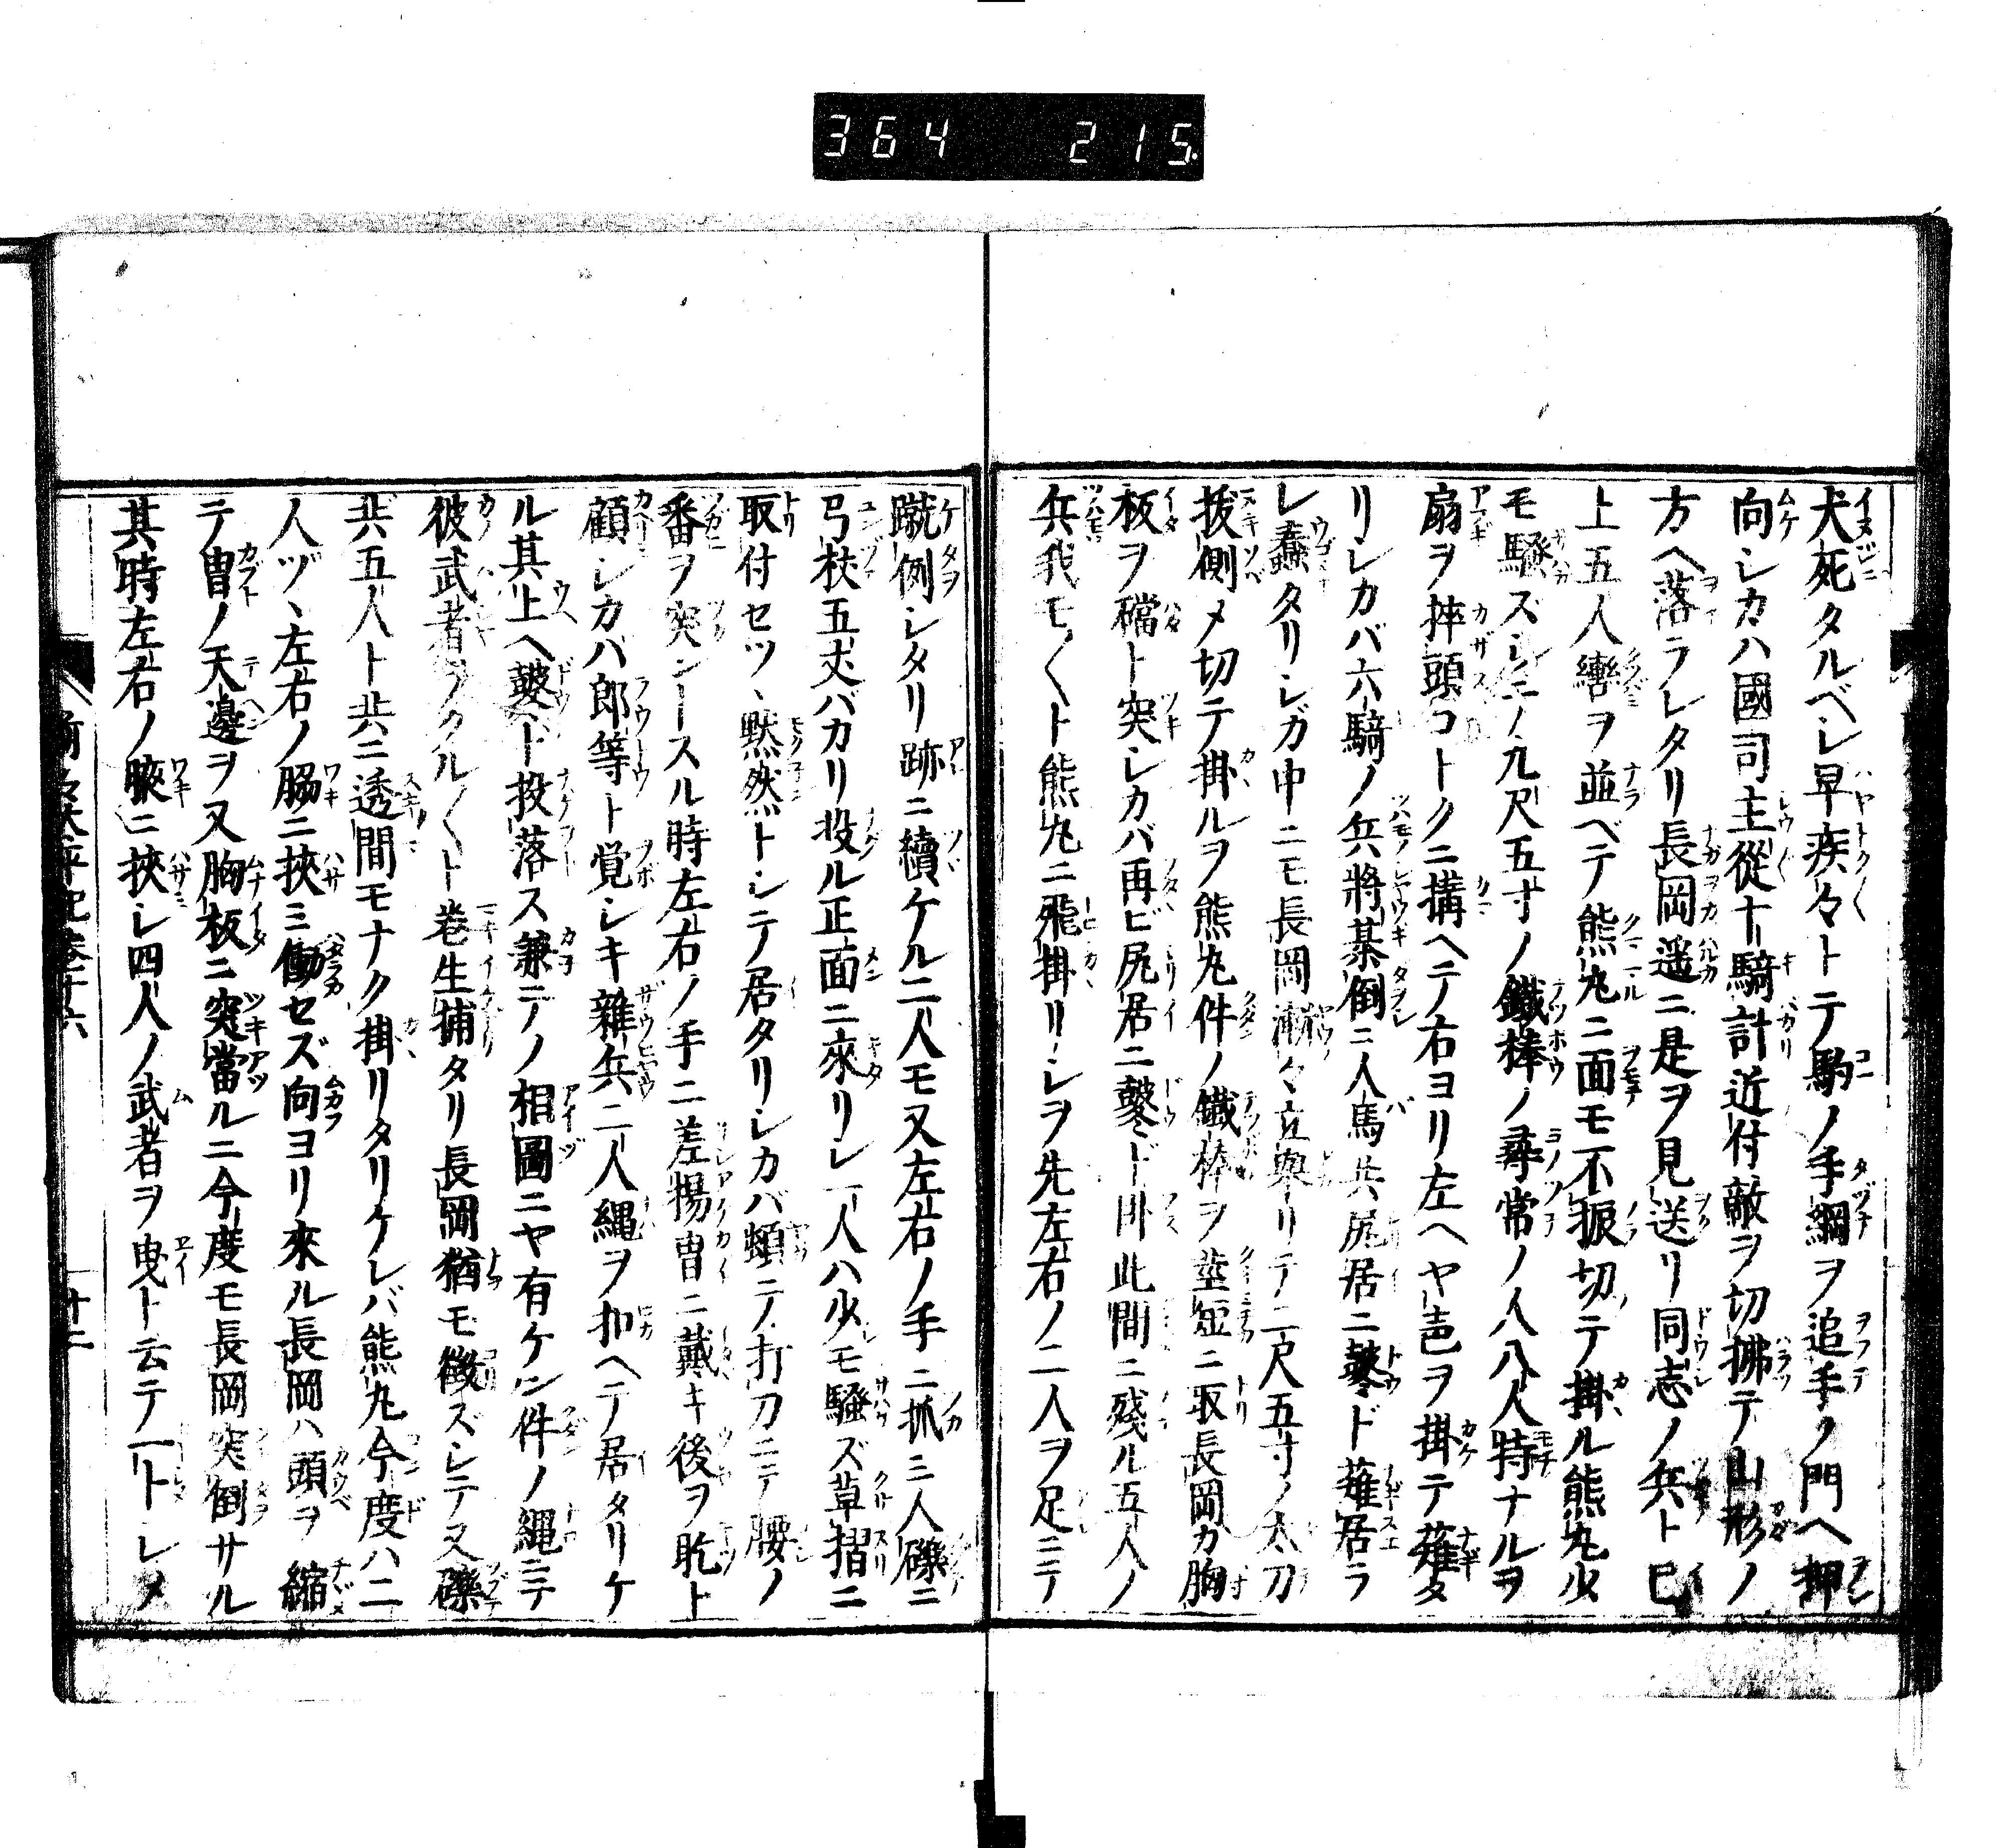 364 215.
犬死タルベシ早疾々トテ駒ノ手綱ヲ追手ノ門ヘ押
向シカハ國司主從十騎計近付敵ヲ切拂テ山形ノ
方ヘ落ラレタリ長岡遥ニ是ヲ見送リ同志ノ兵ト已
上五人轡ヲ並ベテ熊丸ニ面モ不振切テ掛ル熊丸少
モ騒ズシテ九尺五寸ノ鐵棒ノ尋常ノ人八人持ナルヲ
扇ヲ捽頭コトクニ構ヘテ右ヨリ左ヘヤ声ヲ掛テ薙タ
リシカバ六騎ノ兵將棊倒ニ人馬共尻居ニ鼕ド薙居ラ
レ蠢タリシガ中ニモ長岡漸々立奥リテ二尺五寸ノ太刀
拔側メ切テ掛ルヲ熊丸件ノ鐵棒ヲ莖短ニ取長岡カ胸
板ヲ礑ト突シカバ再ビ尻居ニ鼕ド卧此間ニ殘ル五人ノ
兵我モ〱ト熊丸ニ飛掛リシヲ先左右ノ二人ヲ足ニテ
蹴倒シタリ跡ニ續ケル二人モ又左右ノ手ニ抓三人礫ニ
弓杖五丈バカリ投ル正面ニ來リシ一人ハ少モ騒ズ草摺ニ
取付セツヽ黙然トシテ居タリシカバ頓テ打刀ニテ腰ノ
番ヲ突ントスル時左右ノ手ニ差揚冑ニ戴キ後ヲ屹ト
顧シカバ郎等ト覚シキ雜兵二人縄ヲ扣ヘテ居タリケ
ル其上ヘ鼕ド投落ス兼テノ相圖ニヤ有ケン件ノ縄ニテ
彼武者ヲクル〱ト巻生捕タリ長岡猶モ徴ズシテ又礫
共五人ト共ニ透間モナク掛リタリケレバ熊丸今度ハ二
人ヅヽ左右ノ脇ニ挾ミ働セズ向ヨリ來ル長岡ハ頭ヲ縮
テ冑ノ天邊ヲ又胸板ニ突當ルニ今度モ長岡突倒サル
其時左右ノ腋ニ挾シ四人ノ武者ヲ曳ト云テ一トシメ
太平記巻十六 十二